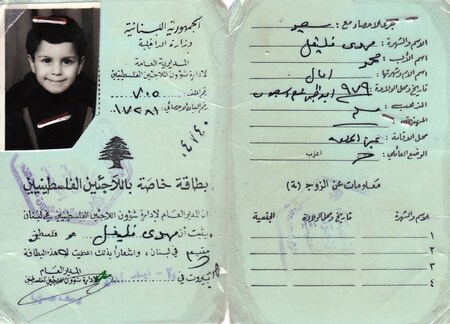 الجمهورية اللبنانية
وزارة الداخلية
المديرية العامة
لادارة شؤون اللاجئين الفلسطينيين
رقم الملف: ٧٠٥
رقم البيان الاحصائي: ١٧٢٨١
بطاقة خاصة باللاجئين الفلسطينيين
ان المدير العام لادارة شؤون اللاجئين الفلسطينيين في لبنان
يثبت أن مهدي فليفل هو فلسطيني
مقيم في لبنان، واشعارا بذلك اعطيت له هذه البطاقة
بيروت في
المدير العام
لادارة شؤون اللاجئين الفلسطينيين
جرى الاحصاء مع:
الاسم والشهرة: مهدي فليفل
اسم الأب: محمد
اسم الأم وشهرتها: امال
تاريخ ومحل الولادة: ٩٧٩
المذهب: مسلم
المهنة:
محل الاقامة: عين الحلوة
الوضع العائلي: اعزب
معلومات عن الزوج (ة)
الاسم والشهرة تاريخ ومحل الولادة الجنسية
١
٢
٣
٤